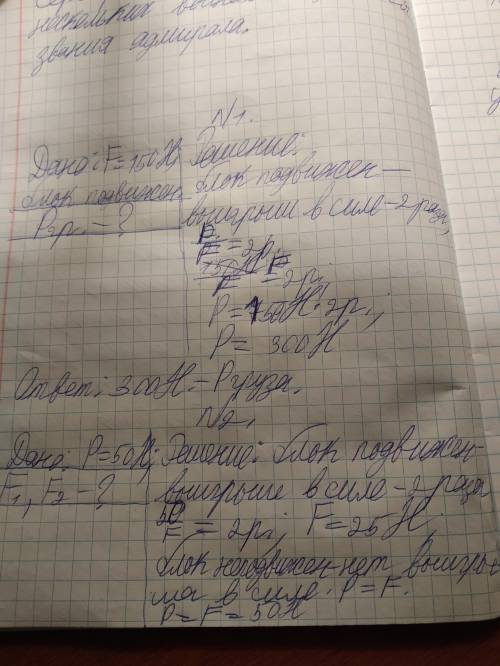 нескольких
звания адмирала.
N1.
Дано: F=150Н; Решение:
блок подвижен блок подвижен —
Pгр. – ? выигрыш в силе – 2 раза,
P/F = 2р.;
P/F = 2р;
P = 150Н · 2р.;
P = 300Н
Ответ: 300Н. – Pгруза.
N2.
Дано: P=50Н; Решение: блок подвижен-
F1, F2 – ? выигрыш в силе – 2 раза
50/F = 2р; F = 25Н;
блок неподвижен-нет выигры-
ша в силе. P = F.
P = F = 50Н